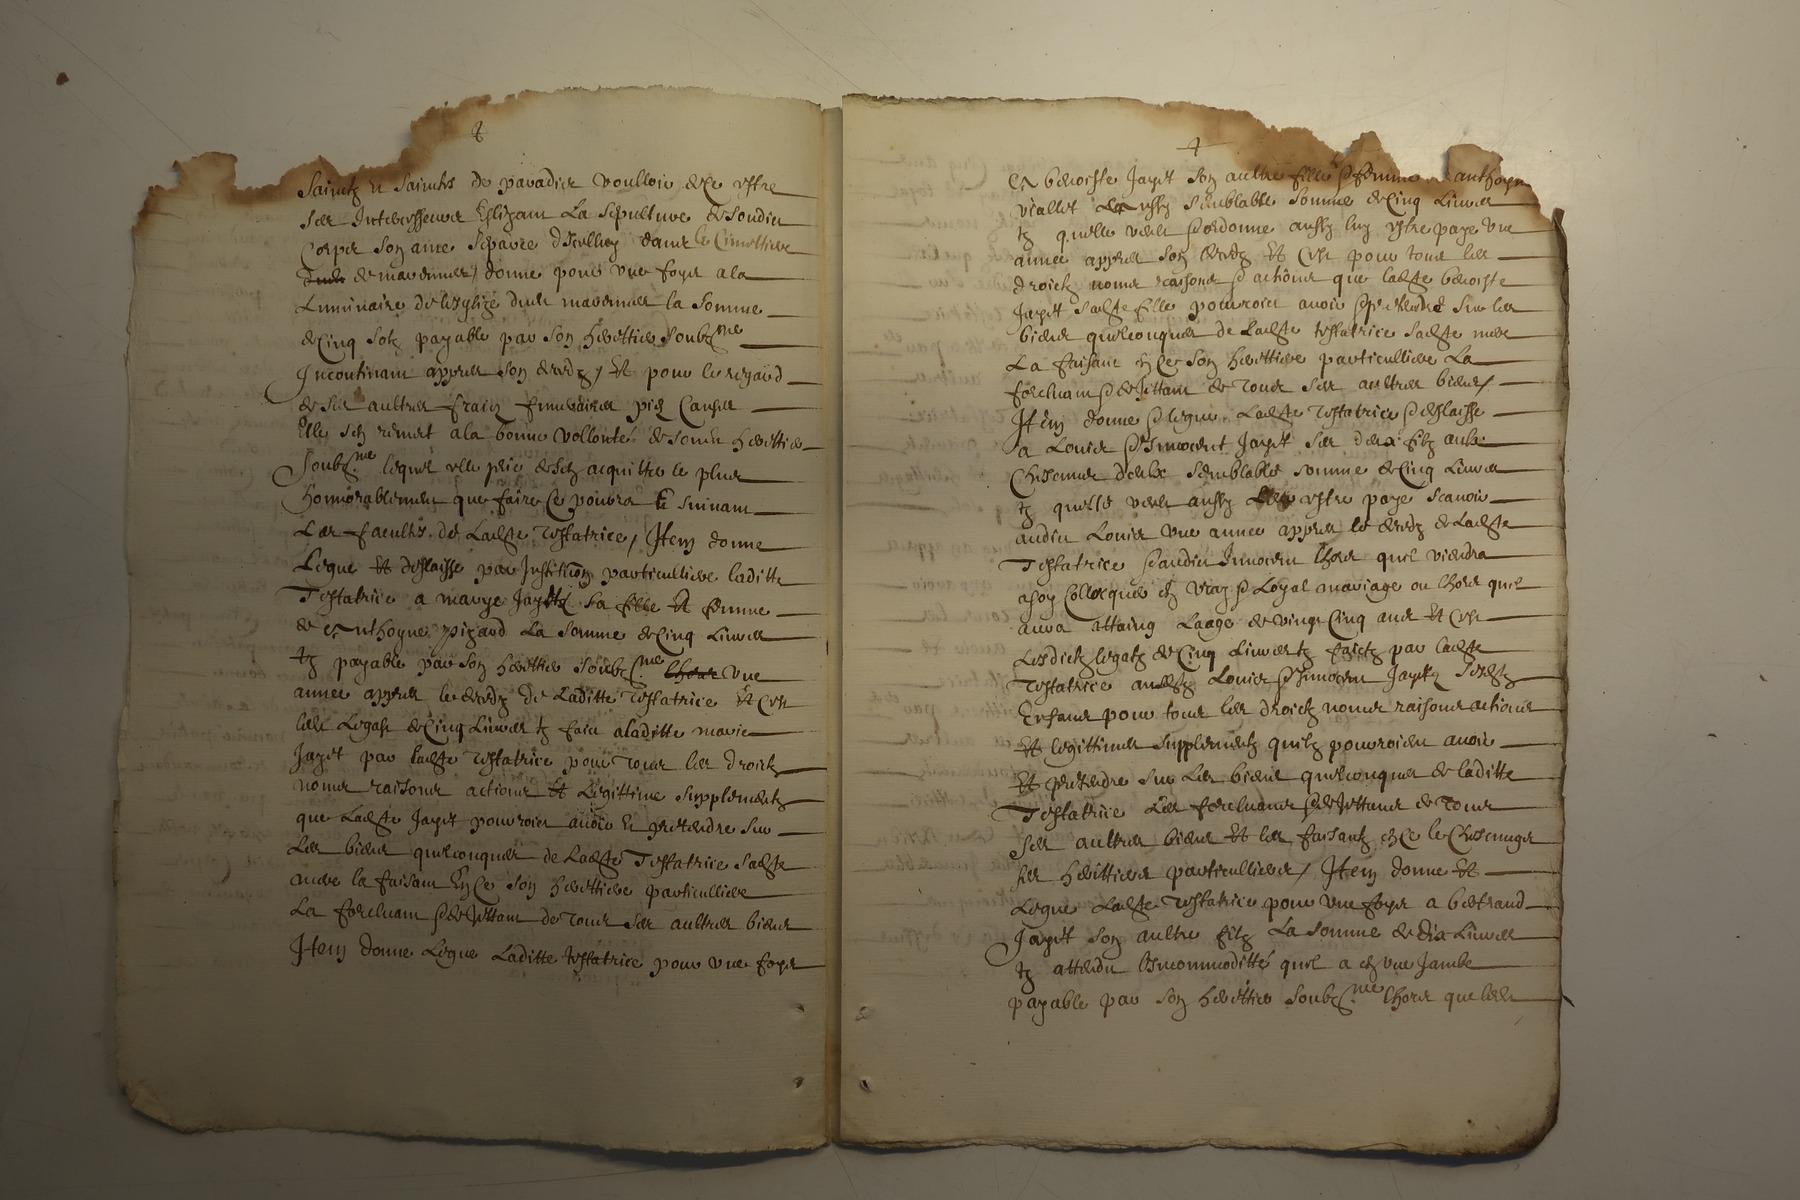 Sainctz et Sainctes de paradis voulloir de ce estre
ses Intercesseurs Eslizant La sepulture de sondict
Corps son ame separée d'Icelluy dans le Cimettiere
de mavernier / donne pour une foys a la
Luminaire de l'esglize dudict mavernier la somme
de Cinq solz payable par son herettier soubz.me
Incontinant appres son deces / Et pour le regard
de ses aultres fraiz funeraires pies Causes
Elle s'en remect a la bonne vollonté de sondict herettier
soubz.me lequel elle prie de s'en acquitter le plus
honnorablement que faire se pourra Et suivant
Les facultes de Ladicte Testatrice / Item donne
Legue Et deslaisse par Institution particulliere laditte
Testatrice a marye Jayet sa fille Et femme
de Anthoyne pigard La somme de Cinq Livres
tz payable par son herettier soubz.me une
annee appres le deces de Laditte testatrice Et C'est
lesdict Legatz de Cinq Livres tz faict a laditte marie
Jayet par ladicte testatrice pour tous les droictz
noms raisons actions Et Legittime supplementz
que Ladicte Jayet pourroict avoir Et pretendre sur
Les biens quelconques de Ladicte Testatrice sadicte
mere la faisant En Ce son herettiere particulliere
La forcluant & dejettant de tous ses aultres biens
Item donne Legue Laditte testatrice pour une foys
A benoiste Jayet son aultre fille & femme anthoyne
viallet semblable somme de Cinq Livres
tz qu'elle veut & ordonne aussy luy estre paye une
annee appres son deces Et C'est pour tous les
droictz noms raisons & actions que ladicte benoiste
Jayet sadicte fille pourroict avoir & pretendre sur les
biens quelconques de Ladicte testatrice sadicte mere
La faisant en Ce son herettiere particulliere La
forcluant & dejettant de tous ses aultres biens /
Item donne & legue Ladicte testatrice & deslaisse
a Louis & Innocent Jayet ses deux filz a un
Chescuns d'eulx semblable somme de Cinq Livres
tz qu'elle veut aussy estre paye scavoir
audict Louis une annee appres le deces de Ladicte
Testatrice & audict Innocent Lhors quil viendra
a soy Collocquer en vray & Loyal mariage ou Lhors quil
aura attaing Laage de vingt Cinq ans Et C'est
Lesdictz legatz de Cinq Livres tz faictz par ladicte
testatrice ausdictz Louis & Innocent Jayetz sesdictz
Enfans pour tous les droictz noms raisons actions
Et legittimes supplementz quilz pourroient avoir
Et pretendre sur Les biens quelconques de laditte
Testatrice Les forcluans & dejettans de tous
ses aultres biens Et les faisantz en Ce le Chescungs
ses herittiers particulliers / Item donne Et
Legue Ladicte testatrice pour une foys a bertrand
Jayet son aultre filz La somme de dix Livres
tz attendu L'Incommoditté quil a en une Jambe
payable par son herettier soubz.me Lhors que ledict